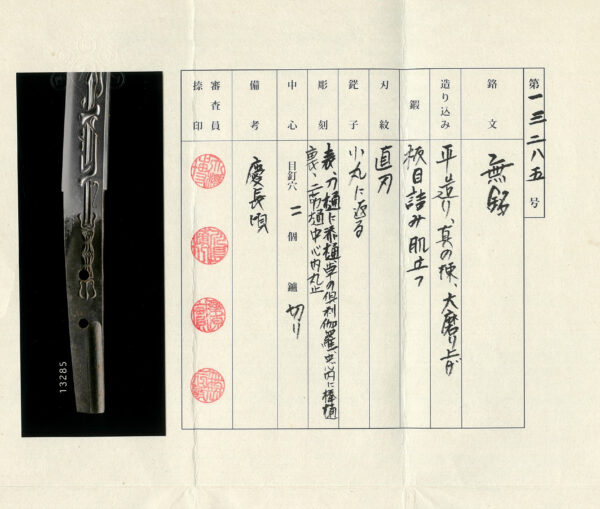 第一三二八五号
銘文 無銘
造り込み 平造り、真の棟、大磨り上げ
鍛 板目詰み肌立つ
刃紋 直刃
鋩子 小丸に返る
彫刻 表、刀樋に添樋草の倶利伽羅、中心内に棒樋
裏、二筋樋中心内丸止
中心 目釘穴 二個 鑢 切り
備考 慶長頃
審査員捺印
13285